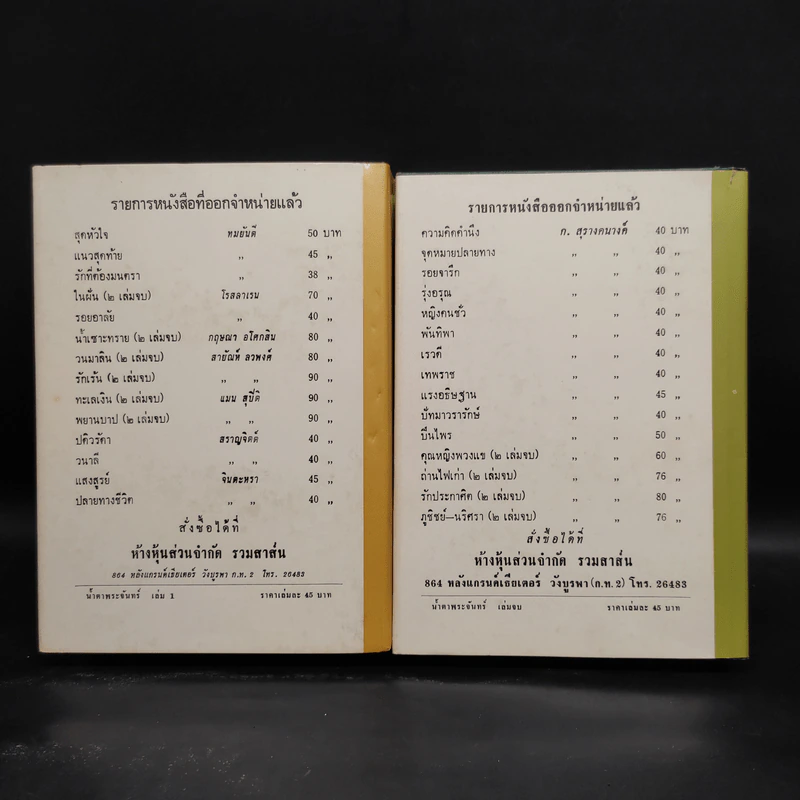 รายการหนังสือที่ออกจำหน่ายแล้ว
สุดหัวใจ ทมยันตี 50 บาท
แนวสุดท้าย ,, 45 ,,
รักที่ต้องมนตรา ,, 38 ,,
ในฝัน (๒ เล่มจบ) โรสลาเรน 70 ,,
รอยอาลัย ,, 40 ,,
น้ำเซาะทราย (๒ เล่มจบ) กฤษณา อโศกสิน 80 ,,
วนมาลิน (๒ เล่มจบ) ลายัณห์ ลวพงค์ 80 ,,
รักเร้น (๒ เล่มจบ) ,, ,, 90 ,,
ทะเลเงิน (๒ เล่มจบ) แมน สุปิติ 90 ,,
พยานบาป (๒ เล่มจบ) ,, ,, 90 ,,
ปดิวรัดา สราญจิตต์ 40 ,,
วนาลี ,, ,, 40 ,,
แสงสูรย์ จินตะหรา 45 ,,
ปลายทางชีวิต ,, ,, 40 ,,
สั่งซื้อได้ที่
ห้างหุ้นส่วนจำกัด รวมสาส์น
864 หลังแกรนด์เธียเตอร์ วังบูรพา ก.ท. 2 โทร. 26483
น้ำตาพระจันทร์ เล่ม 1 ราคาเล่มละ 45 บาท
รายการหนังสือออกจำหน่ายแล้ว
ความคิดคำนึง ก. สุรางคนางค์ 40 บาท
จุดหมายปลายทาง ,, ,, 40 ,,
รอยจารึก ,, ,, 40 ,,
รุ่งอรุณ ,, ,, 40 ,,
หญิงคนชั่ว ,, ,, 40 ,,
พันทิพา ,, ,, 40 ,,
เรวดี ,, ,, 40 ,,
เทพราช ,, ,, 40 ,,
แรงอธิษฐาน ,, ,, 45 ,,
ปัทมาวรารักษ์ ,, ,, 40 ,,
ปิ่นไพร ,, ,, 50 ,,
คุณหญิงพวงแข (๒ เล่มจบ) ,, ,, 60 ,,
ถ่านไฟเก่า (๒ เล่มจบ) ,, ,, 76 ,,
รักประกาศิต (๒ เล่มจบ) ,, ,, 80 ,,
ภูชิชย์–นริศรา (๒ เล่มจบ) ,, ,, 76 ,,
สั่งซื้อได้ที่
ห้างหุ้นส่วนจำกัด รวมสาส์น
864 หลังแกรนด์เธียเตอร์ วังบูรพา (ก.ท. 2) โทร. 26483
น้ำตาพระจันทร์ เล่มจบ ราคาเล่มละ 45 บาท